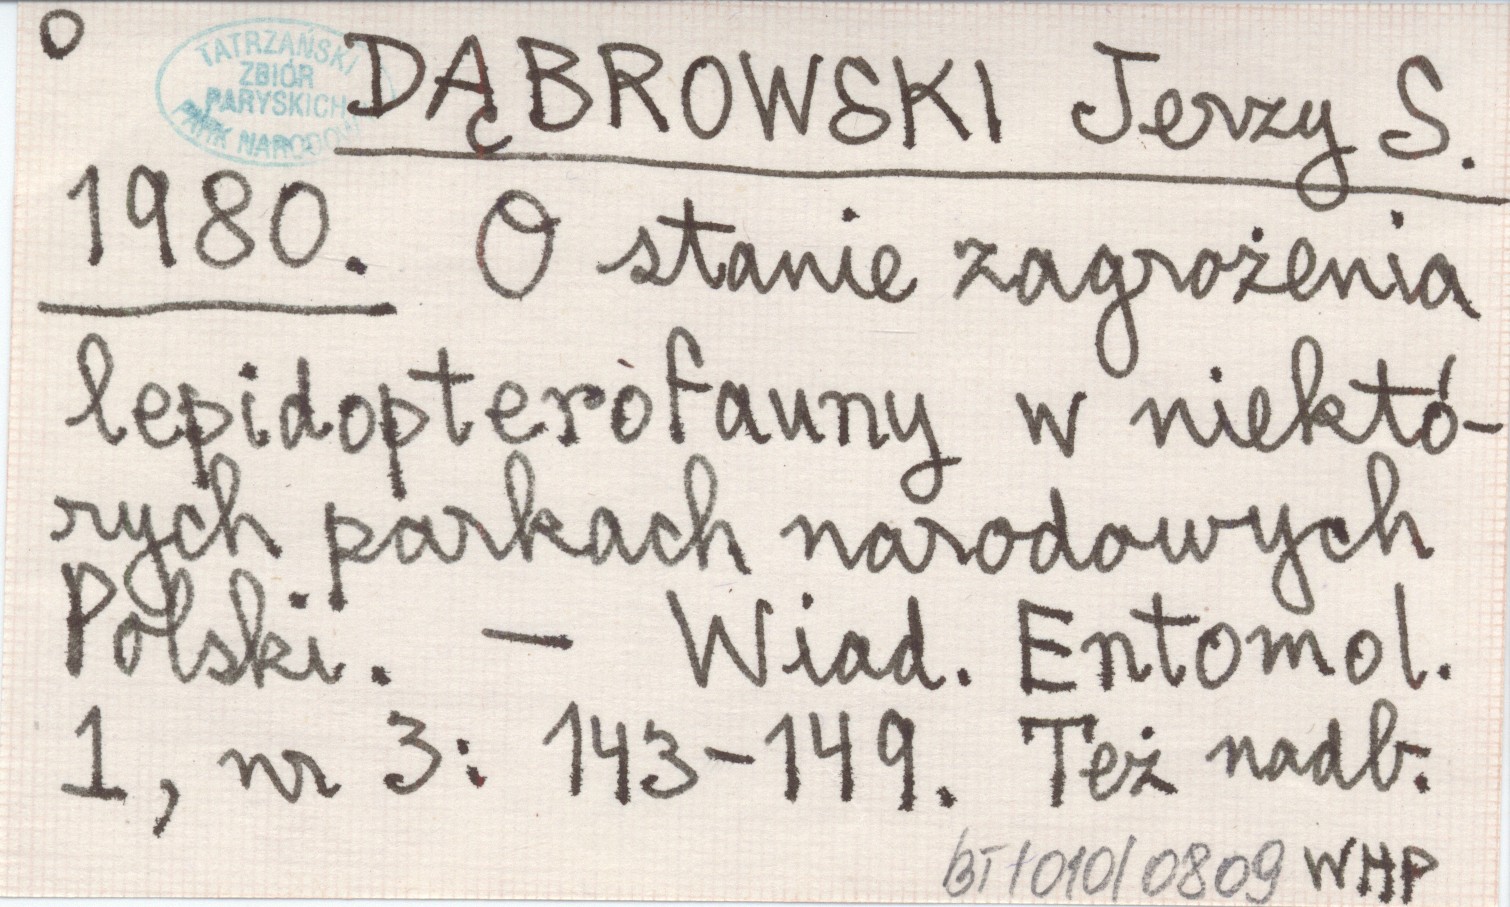 O
TATRZAŃSKI
ZBIÓR
PARYSKICH
PARK NARODOWY
DĄBROWSKI Jerzy S.
1980. O stanie zagrożenia
lepidopterofauny w niektó-
rych parkach narodowych
Polski. — Wiad. Entomol.
1, nr 3: 143-149. Też nadb.
BT/010/0809 WHP